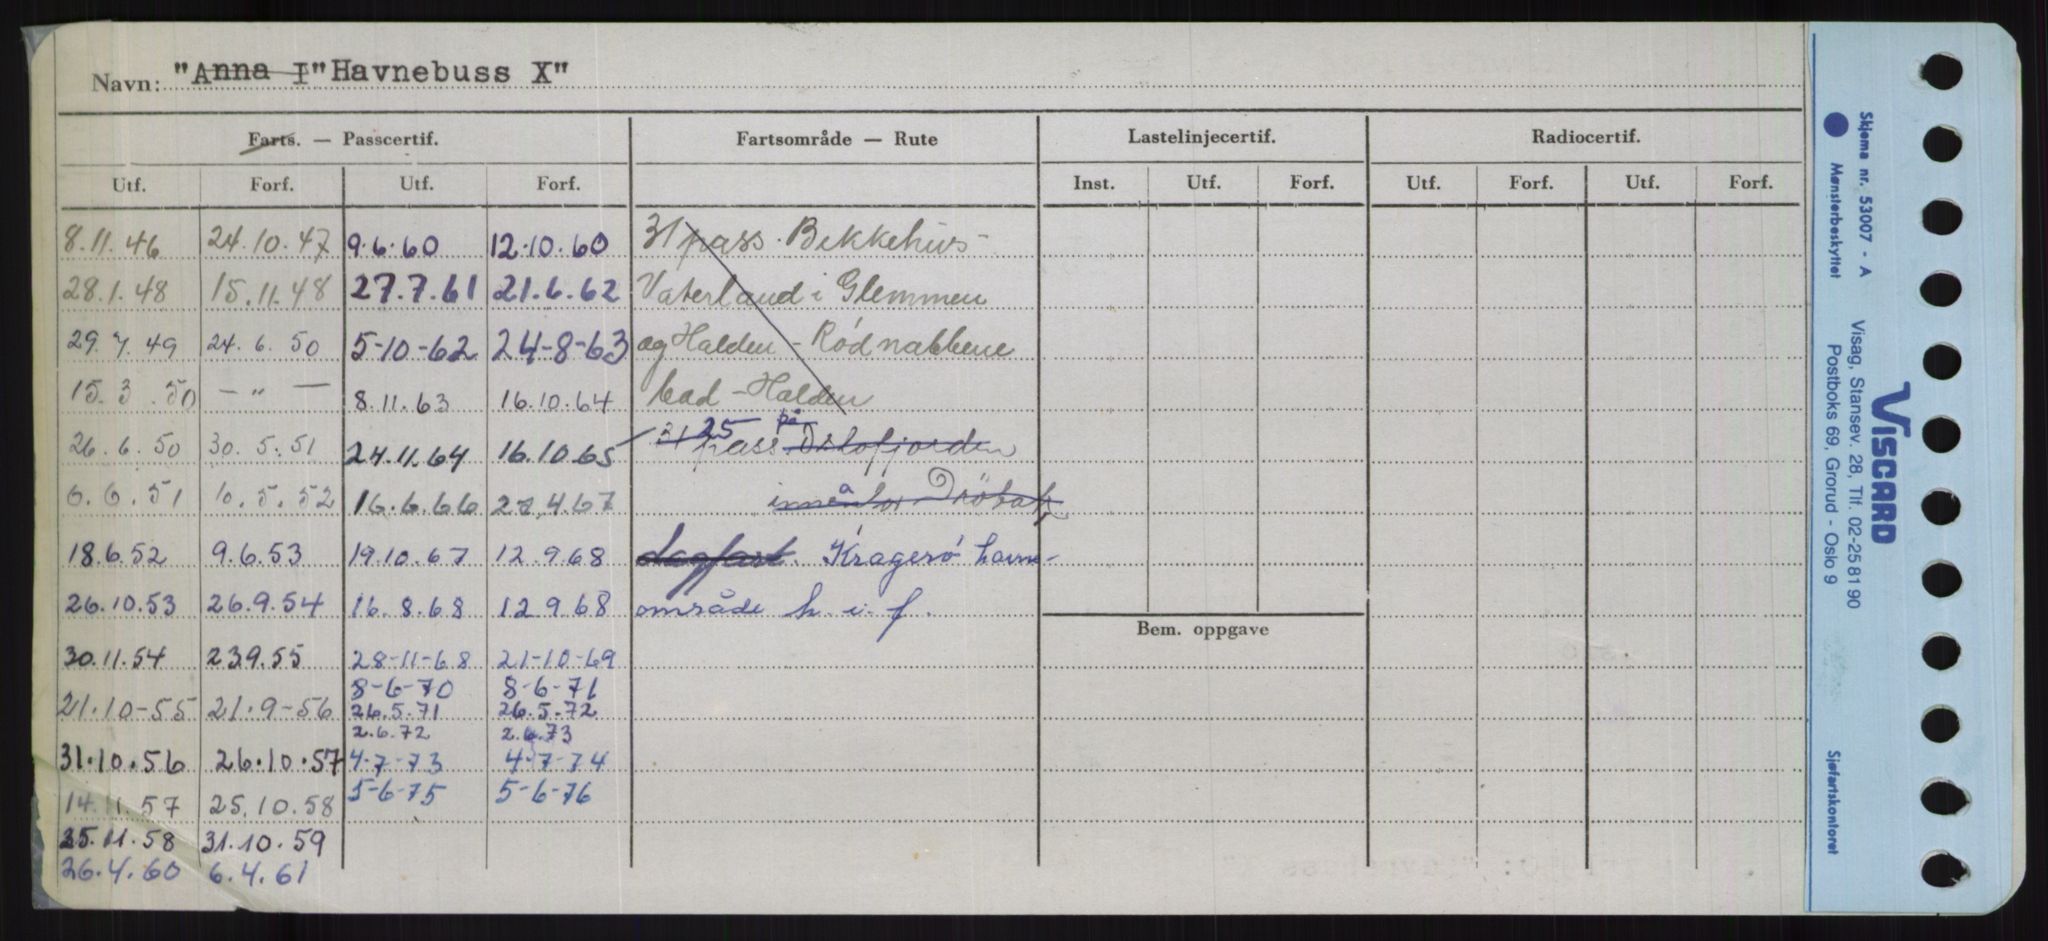 Navn: "Anna I" Havnebuss X"
Farts. — Passcertif. Fartsområde — Rute Lastelinjecertif. Radiocertif.
Utf. Forf. Utf. Forf. Inst. Utf. Forf. Utf. Forf. Utf. Forf.
8.11.46 24.10.47 9.6.60 12.10.60 31 pass. Bekkehus-
28.1.48 15.11.48 27.7.61 21.6.62 Vaterland i Glemmen
29.7.49 24.6.50 5-10-62 24-8-63 og Halden - Rødnabbene
15.3.50 — " — 8.11.63 16.10.64 bad - Halden
26.6.50 30.5.51 24.11.64 16.10.65 31 25 pass på Oslofjorden
6.6.51 10.5.52 16.6.66 27.4.67 Drøbak
18.6.52 9.6.53 19.10.67 12.9.68 Kragerø havne-
26.10.53 26.9.54 16.8.68 12.9.68 område h.i.f.
Bem. oppgave
30.11.54 23.9.55 28-11-68 21-10-69
8-6-70 8-6-71
21.10-55 21.9-56 26.5.71 26.5.72
2.6.72 2.6.73
31.10.56 26.10.57 4-7-73 4-7-74
14.11.57 25.10.58 5-6-75 5-6-76
25.11.58 31.10.59
26.4.60 6.4.61
Skjema nr. 53007 - A
Mønsterbeskyttet
VISCARD
Visag, Stansev. 28, Tlf. 02-25 81 90
Postboks 69, Grorud - Oslo 9
Sjøfartskontoret